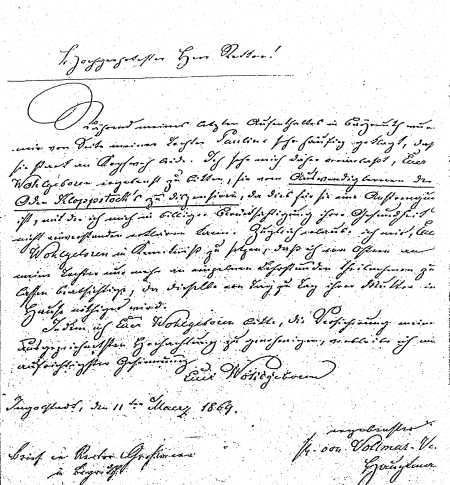 Hochgeehrtester Herr Rektor!
Während meines letzten Aufenthaltes in Bayreuth wurde
mir von Seite meiner Tochter Pauline sehr häufig geklagt, daß
sie stark an Kopfweh leide. Ich sehe mich daher veranlaßt, Euer
Wohlgeboren ergebenst zu bitten, sie vom Auswendiglernen der
Oden Kloppstock's zu dispensiren, da dies für sie eine Anstrengung
ist, mit der ich mich in billiger Berücksichtigung ihrer Gesundheit
nicht einverstanden erklären kann. Zugleich erlaube ich mir, Euer
Wohlgeboren in Kenntniß zu setzen, daß ich von Ostern an
meine Tochter nur mehr an einzelnen Lehrstunden theilnehmen zu
lassen beabsichtige, da dieselbe von Tag zu Tag ihrer Mutter im
Hause nöthiger wird.
Indem ich Euer Wohlgeboren bitte, die Versicherung meiner
ausgezeichnetsten Hochachtung zu genehmigen, verbleibe ich mit
aufrichtigster Gesinnung
Euer Wohlgeboren
Ingolstadt, den 11ten Maerz 1869.
ergebenster
von Vollmar
Hauptmann
Brief an Rektor Großmann
in Bayreuth